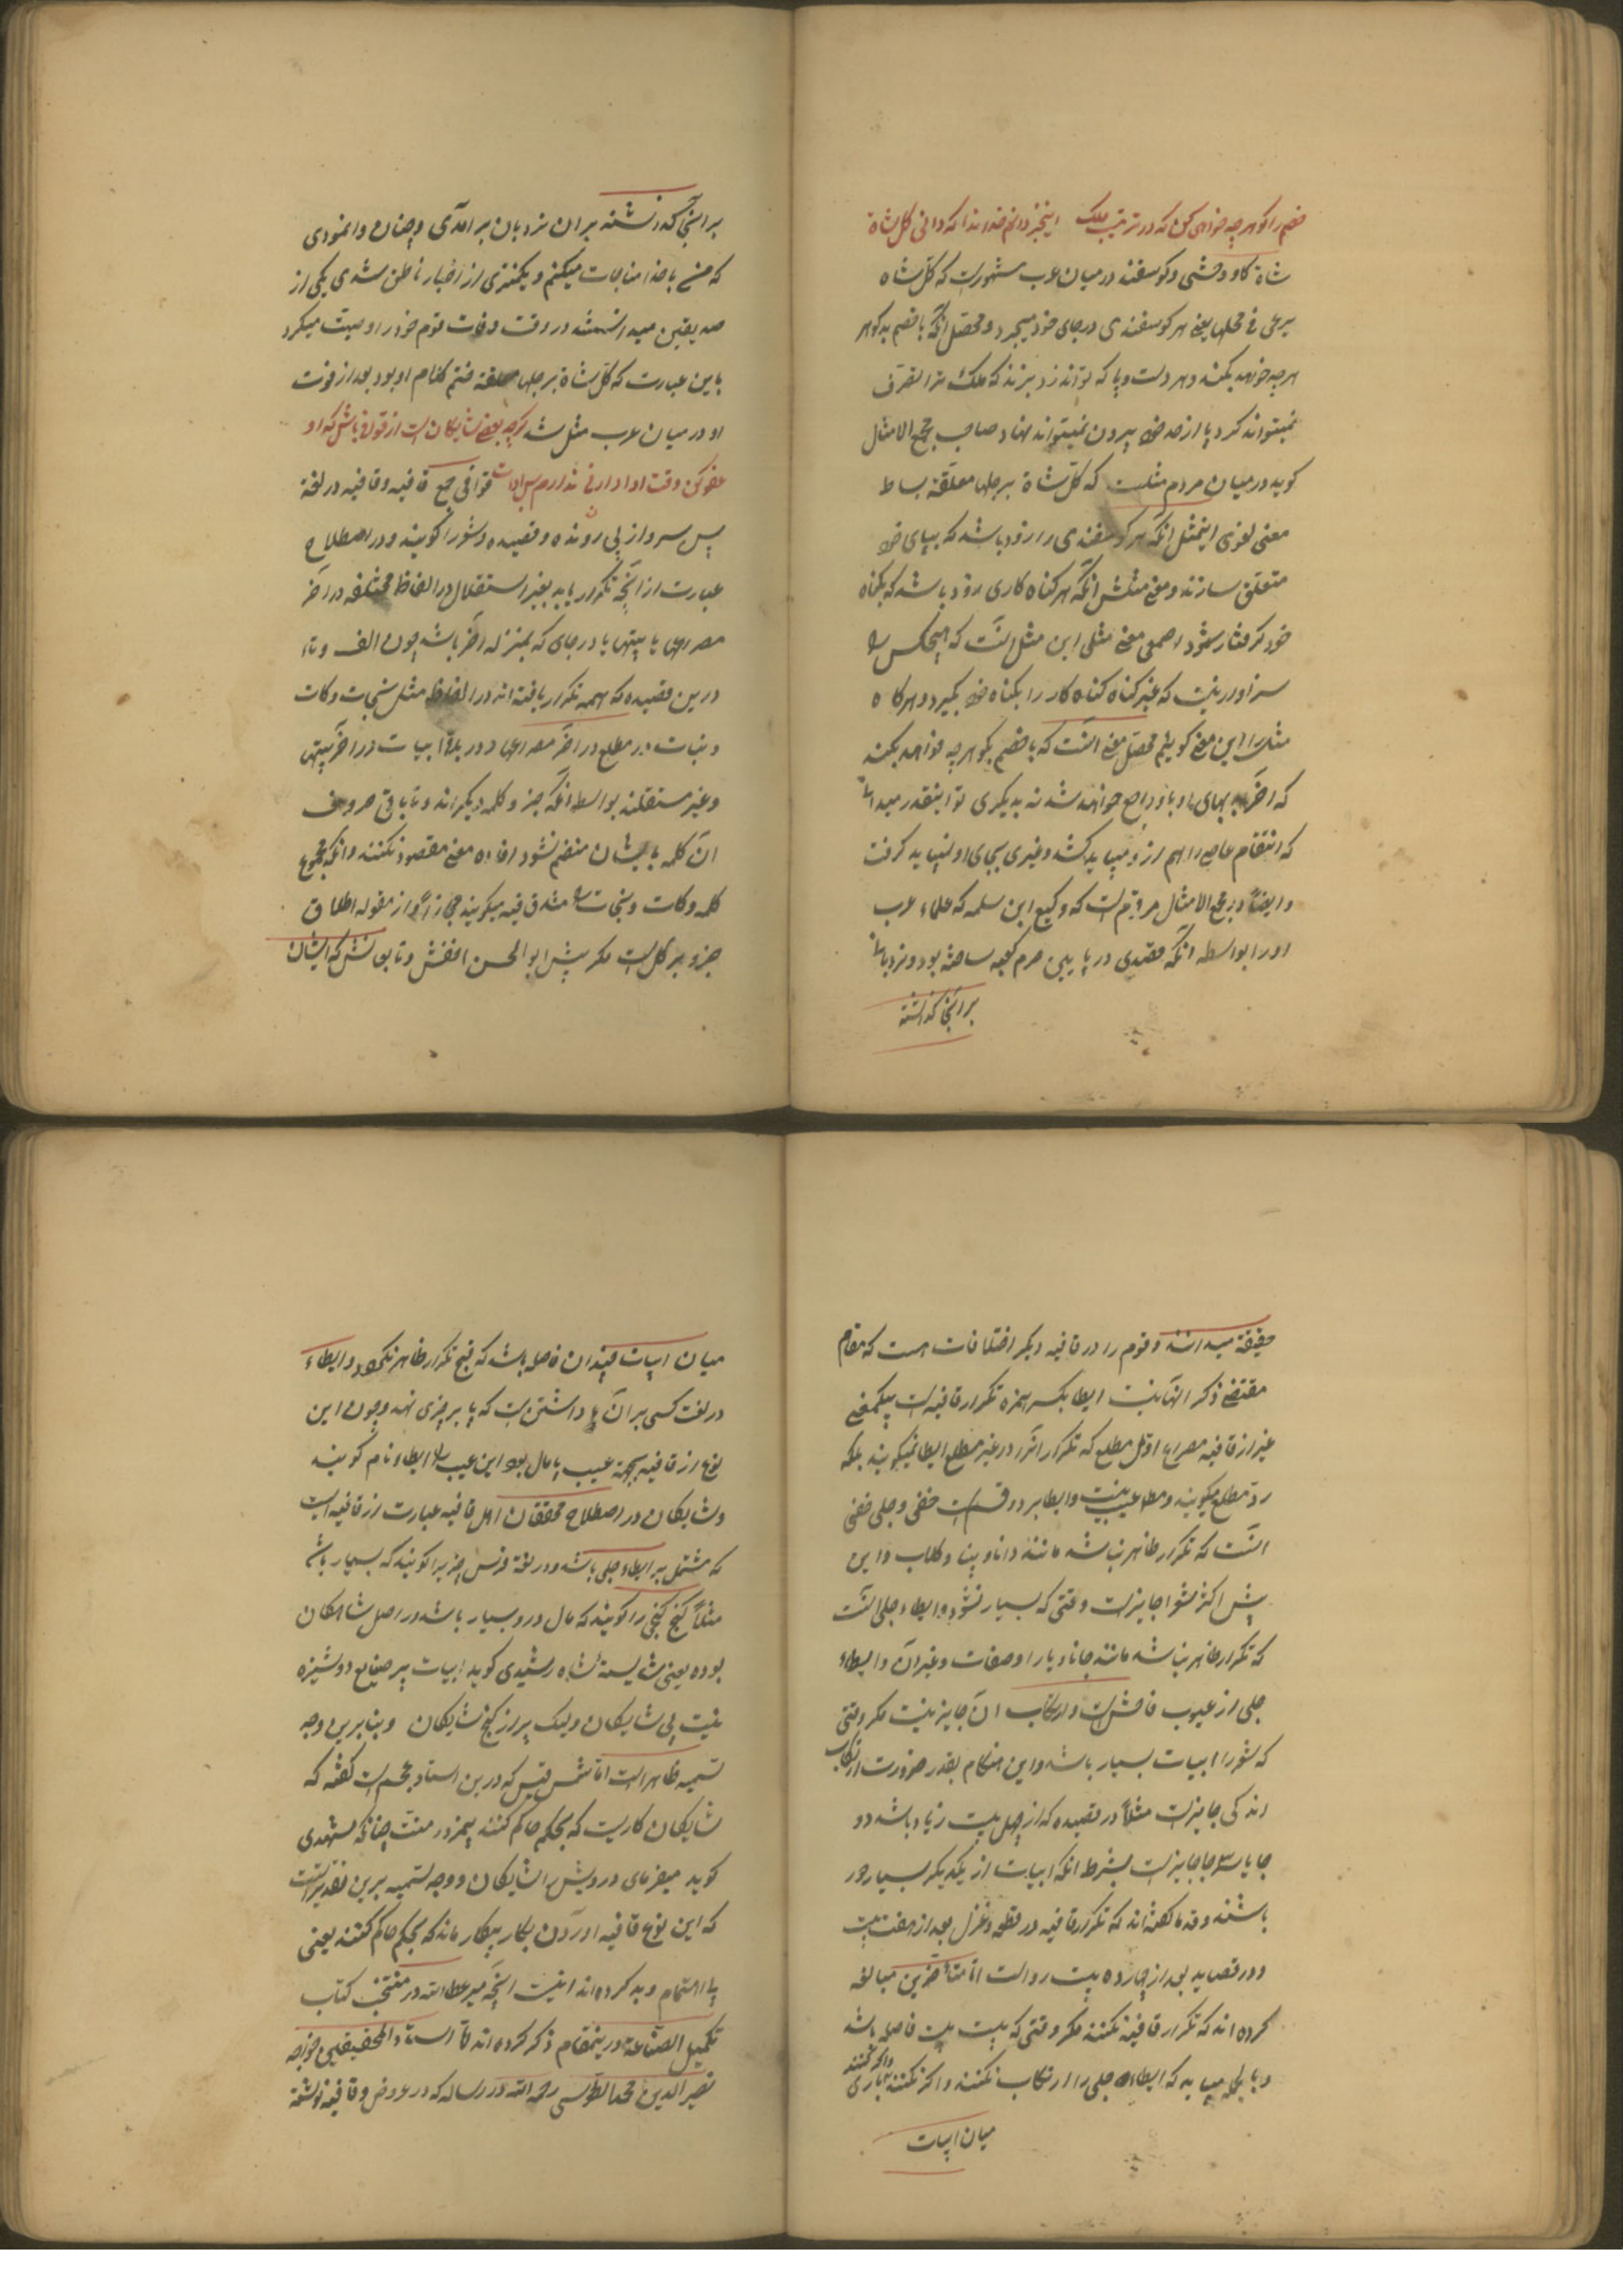 خصم را کو هرچه خواهی کن که در ترتیب ملک اینخبر دانم خداوندا که دانی کل شاة
شاة گاو وحشی و کوسفند در میان عرب مشهورست که کل شاه
یرعی فی محلها یعنی هر کوسفندی در جای خود میچرد و محصل آنکه با خصم بدکوهر
هرچه خواهد بکند و هر دست و پا که تواند زد بزند که ملک ترا تصرف
نمیتواند کرد و پا از حد خود بیرون نمیتواند نهاد صاحب مجمع الامثال
کوید در میان مردم مثلست که کل شاة برجلها معلقة بساط
معنی لغوی اینمثل آنکه هر کوسفندی را زود باشد که بپای خود
متعلق سازند و معنی مثلش آنکه هر کناه کاری زود باشد که بکناه
خود کرفتار شود اصمعی معنی مثلی این مثل آنست که هیچکس را
سزاوار نیست که غیر کناه کناه کار را بکناه خود بکیرد و هرکاه
مثل را این معنی کوئیم محصل معنی آنست که با خصم بکو هرچه خواهد بکند
که آخر بهای او باو راجع خواهد شد نه بدیکری تو اینقدر میدانی
که انتقام عاصی را هم ازو میباید کشد و غیری بجای او نیباید کرفت
و ایضاً در مجمع الامثال مرقوم است که وکیع ابن سلمه که علماء عرب
او را بواسطه آنکه مقتدی در پایین حرم کعبه ساخته بود و نردبانی
بر آنجا کذاشته
بر آنجا کذاشته بر آن نردبان برآمدی و چنان وانمودی
که من با خدا مناجات میکنم و بکنتری از اخبار ناطق شدی یکی از
صدیقین میدانستند در وقت وفات قوم خود را وصیت میکرد
باین عبارت که کل شاة برجلها معلقة ختم کلام او بود بعد از فوت
او در میان عرب مثل شد کرچه بعضی شایکان است از قوافی باش کو او
عفو کن وقت ادا دانی ندارم بس ادات قوافی جمع قافیه و قافیه در لغة
پس سر و از پی رونده و قصیده و شعر را کویند و در اصطلاح
عبارت از آنچه تکرار یابد بغیر استقلال در الفاظ مختلفه در آخر
مصراعها یا بیتها یا در جای که بمنزله آخر باشد چون الف و تاء
درین قصیده که همه تکرار یافته اند در الفاظ مثل نجات و کات
و نبات در مطلع در آخر مصراعها و در باقی ابیات در آخر بیتها
و غیر مستقلند بواسطه آنکه جزو کلمه دیکراند و تا باقی حروف
آن کلمه بایشان منضم نشود افاده معنی مقصود نکنند و آنکه مجموع
کلمه و کات و نجات را مثلا قافیه میکویند مجازاً از مقوله اطلاق
جزو بر کل است مکر پیش ابو الحسن اخفش و تابعانش که ایشان
حقیقة میدانند و قوم را در قافیه دیکر اختلافات هست که مقام
مقتضی ذکر آنها نیست ایطا بکسر همزه تکرار قافیه است بیکمعنی
غیر از قافیه مصراع اول مطلع که تکرار آنرا در غیر مطلع ایطا نمیکویند بلکه
رد مطلع میکویند و مطلقا عیب نیست و ایطا بر دو قسم است خفی و جلی خفی
آنست که تکرار ظاهر نباشد مانند دانا و بینا و کلاب و این
پیش اکثر شعرا جایزست وقتی که بسیار نشود و ایطاء جلی آنست
که تکرار ظاهر باشد مانند جانا و یارا و صفات و غیر آن و ایطاء
جلی از عیوب فاحش است و ارتکاب آن جایز نیست مکر وقتی
که شعر را ابیات بسیار باشد و این هنکام بقدر ضرورت ارتکاب
اندکی جایزست مثلاً در قصیده که از چهل بیت زیاد باشد دو
جا یا سه جا جایزست بشرط آنکه ابیات از یکدیکر بسیار دور
باشند و قدما کفته اند که تکرار قافیه در قطعه و غزل بعد از هفت بیت
و در قصاید بعد از چهارده بیت رواست اما متأخرین مبالغه
کرده اند که تکرار قافیه نکنند مکر وقتی که بیست بیت فاصله باشد
و بالجمله میباید که ایطاء جلی را ارتکاب نکنند و اکر کنند باری
میان ابیات
میان ابیات چندان فاصله باشد که قبح تکرار ظاهر نکردد و ایطاء
در لغت کسی بر آن داشتن است که پا بر چیزی نهد و چون این
نوع از قافیه بجهة عیب پامال بود این عیب را ایطاء نام کویند
و شایکان در اصطلاح محققان اهل قافیه عبارت از قافیه است
که مشتمل بر ایطاء جلی باشد و در لغة فرس چیزیرا کویند که بسیار باشد
مثلاً کنج کنجی را کویند که مال درو بسیار باشد در اصل شاهکان
بوده یعنی شایسته شاه رشیدی کوید ابیات پر صنایع دوشیزه
نیست بی شایکان ولیک پر از کنج شایکان و بنابرین وجه
تسمیه ظاهر است اما شمس قیس که درین استاد عجم است کفته که
شایکان کاریست که بحکم حاکم کنند بیمزد و منت چنانکه شهیدی
کوید میفرمای درویش را شایکان و وجه تسمیه برین تقدیر آنست
که این نوع قافیه آوردن بکار بیکار ماند که بحکم حاکم کنند یعنی
بی اهتمام و بد کرده اند اینست آنچه میر عطاءالله در منتخب کتاب
تکمیل الصناعة درینمقام ذکر کرده اند اما استاد المحققین خواجه
نصیر الدین محمد الطوسی رحمه الله در رساله که در عروض و قافیه نوشته